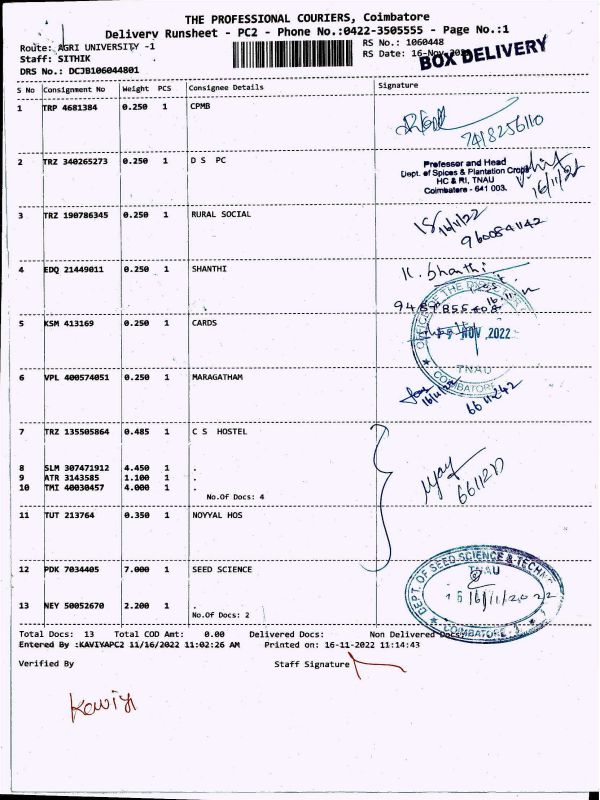 THE PROFESSIONAL COURIERS, Coimbatore
Delivery Runsheet - PC2 - Phone No.:0422-3505555 - Page No.:1
Route: AGRI UNIVERSITY -1
RS No.: 1060448
Staff: SITHIK
RS Date: 16-Nov-2022
BOX DELIVERY
DRS No.: DCJB106044801
S No Consignment No Weight PCS Consignee Details Signature
1 TRP 4681384 0.250 1 CPMB
7418256110
2 TRZ 340265273 0.250 1 D S PC
Professor and Head
Dept. of Spices & Plantation Crops
HC & RI, TNAU
Coimbatore - 641 003.
16/11/22
3 TRZ 190786345 0.250 1 RURAL SOCIAL
16/11/22
4 EDQ 21449011 0.250 1 SHANTHI
K. Shanthi
5 KSM 413169 0.250 1 CARDS
NOV 2022
TNAU
COIMBATORE
6 VPL 400574051 0.250 1 MARAGATHAM
16/11/22
6611242
7 TRZ 135505864 0.485 1 C S HOSTEL
8 SLM 307471912 4.450 1 .
9 ATR 3143585 1.100 1 .
10 TMI 40030457 4.000 1 .
No.Of Docs: 4
11 TUT 213764 0.350 1 NOYYAL HOS
12 PDK 7034405 7.000 1 SEED SCIENCE
DEPT. OF SEED SCIENCE & TECH
TNAU
16/11/2022
COIMBATORE - 3
13 NEY 50052670 2.200 1 .
No.Of Docs: 2
Total Docs: 13 Total COD Amt: 0.00 Delivered Docs: Non Delivered Docs:
Entered By :KAVIYAPC2 11/16/2022 11:02:26 AM Printed on: 16-11-2022 11:14:43
Verified By Staff Signature
Kaviya